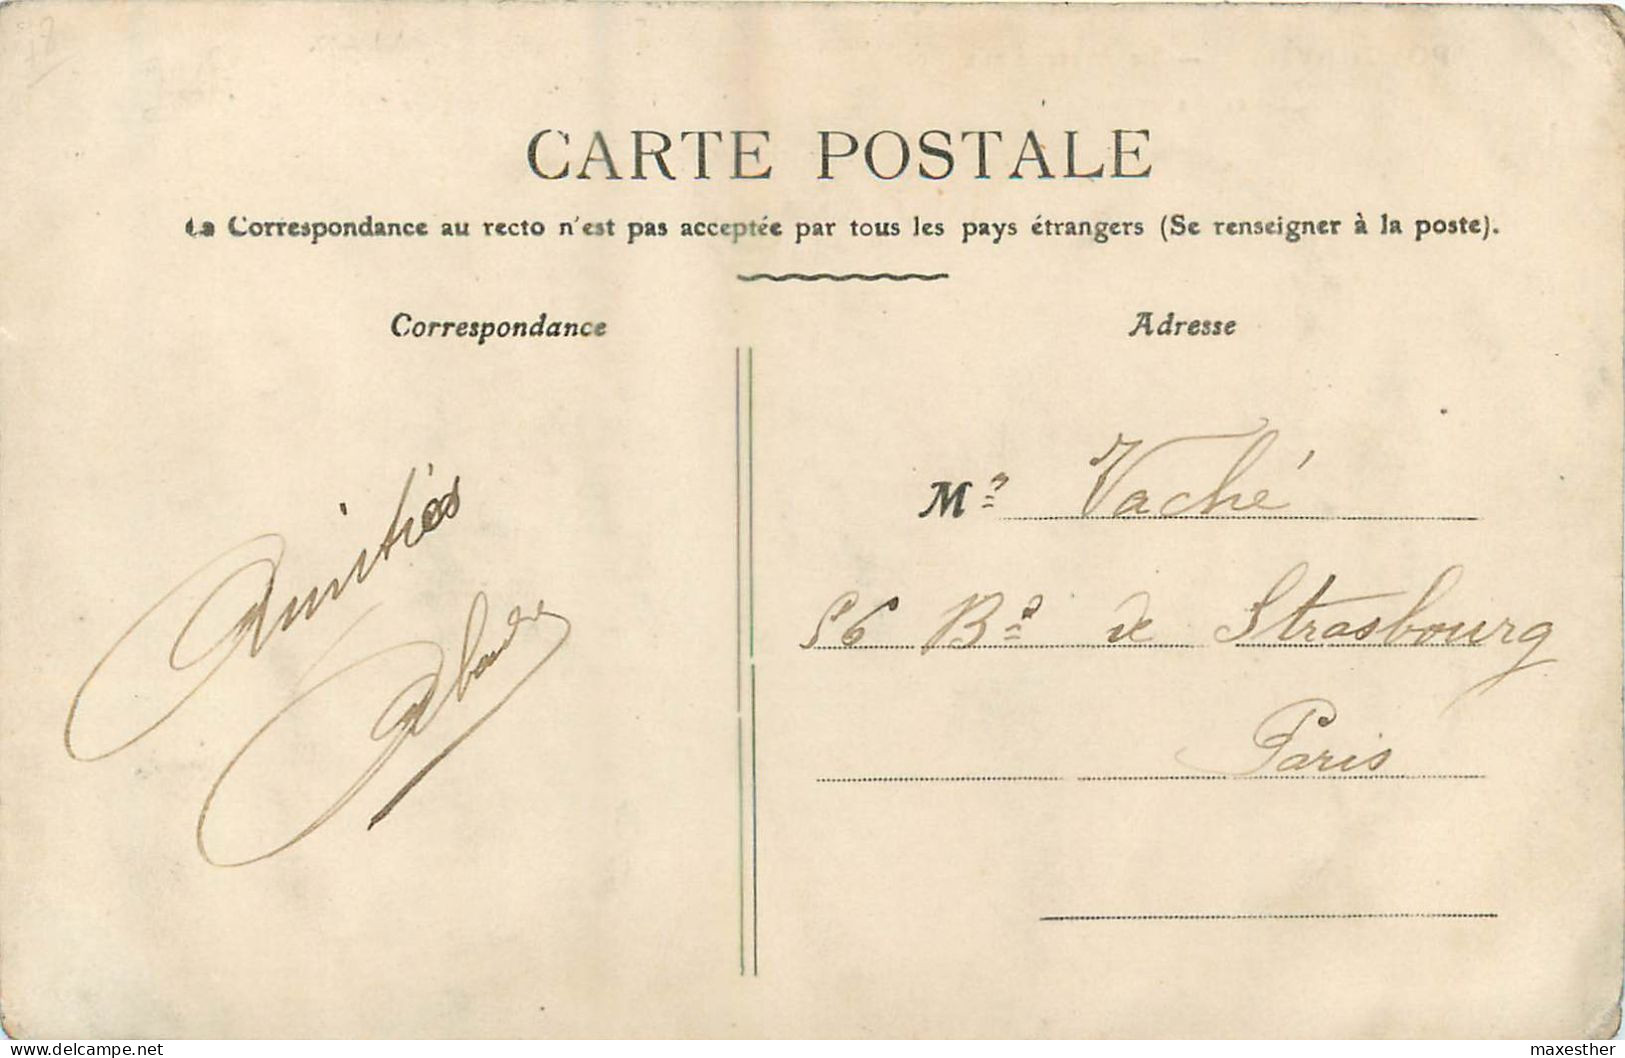 CARTE POSTALE
La Correspondance au recto n'est pas acceptée par tous les pays étrangers (Se renseigner à la poste).
Correspondance
Adresse
Amitiés
Mr Vaché
56 Bd de Strasbourg
Paris
delcampe.net
maxesther